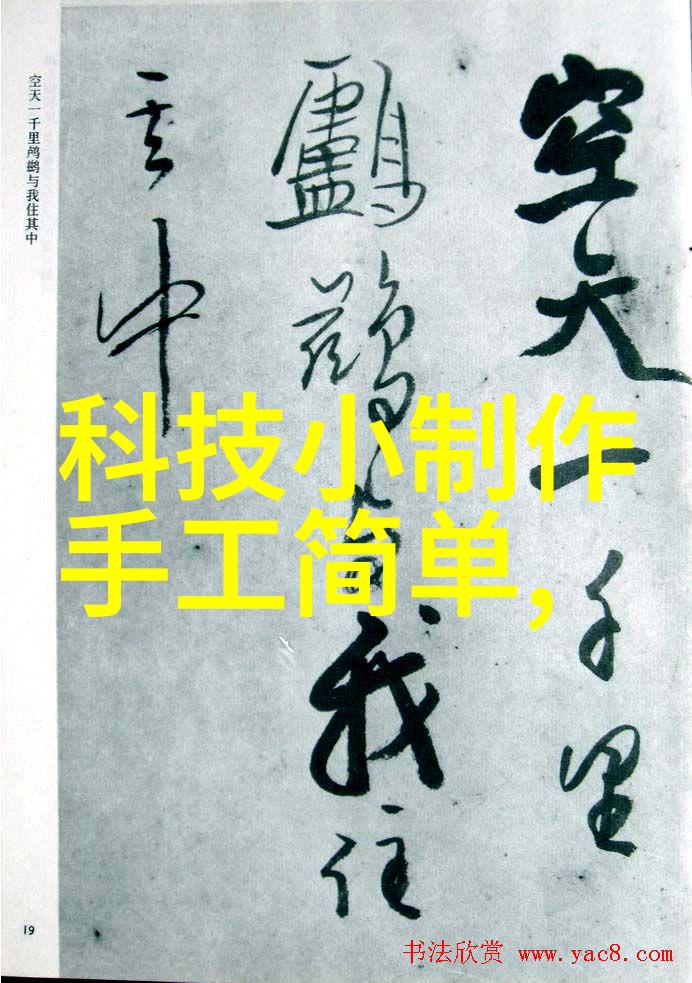 空天一千里
鸕鷀與我住
其中
空天一千里鸬鹚与我住其中
科技小制作
手工简单,
19
书法欣赏 www.yac8.com